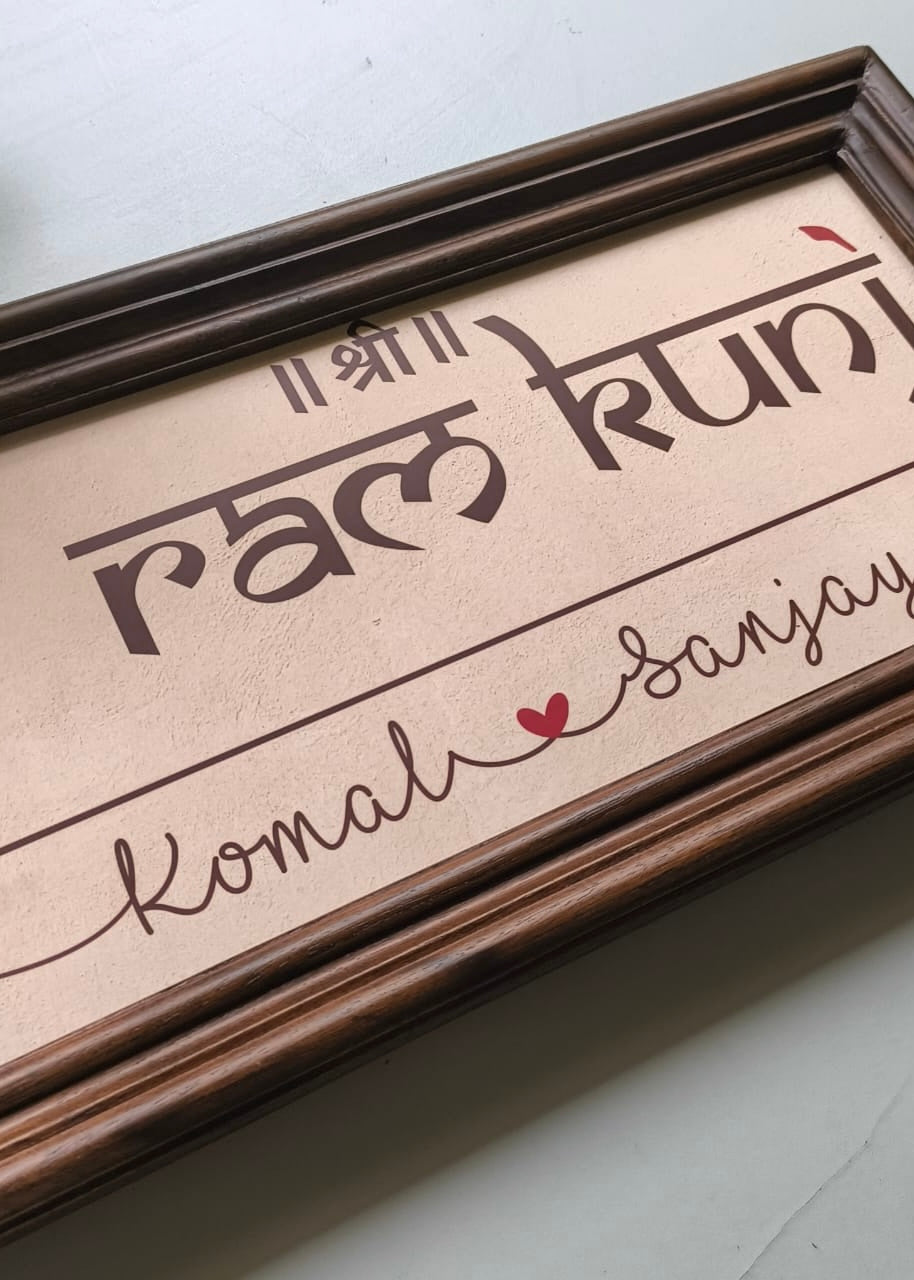 ॥श्री॥
ram kunj
Komal Sanjay